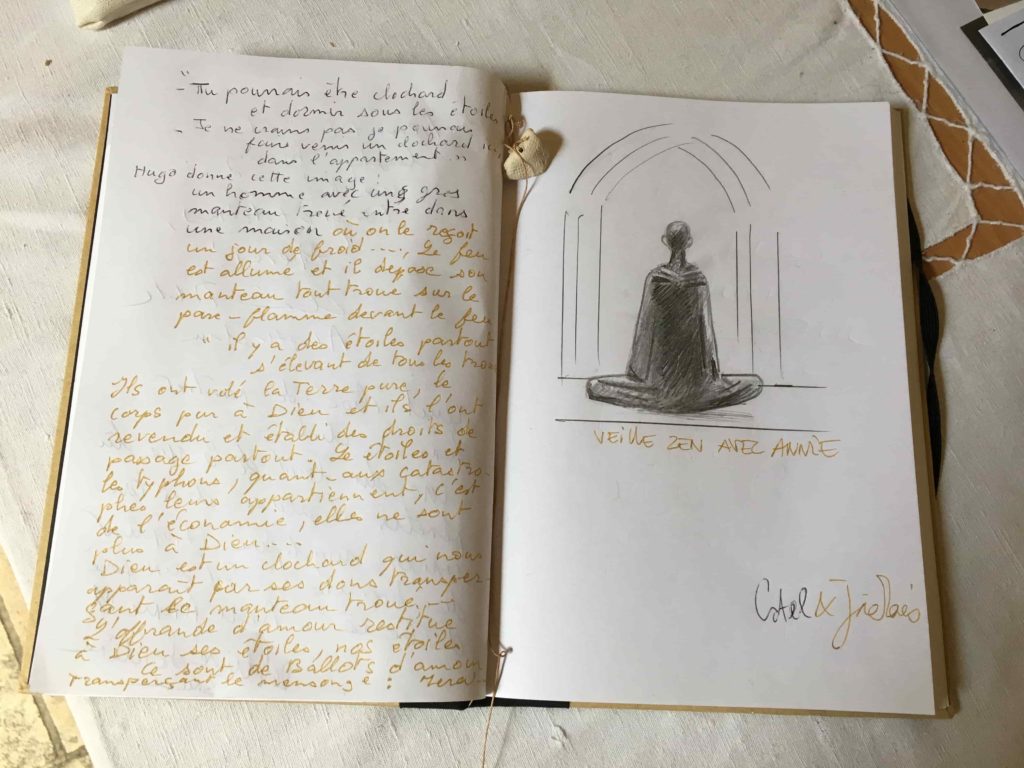 "
- Tu pourrais être clochard
et dormir sous les étoiles
- Je ne crains pas je pourrais
faire venir un clochard ici,
dans l'appartement.."
Hugo donne cette image :
un homme avec une gros
manteau troué entre dans
une maison où on le reçoit
un jour de froid..... Le feu
est allumé et il dépose son
manteau tout troué sur le
pare-flamme devant le feu
" il y a des étoiles partout
s'élevant de tous les trous
Ils ont volé la Terre pure, le
corps pur à Dieu et ils l'ont
revendu et établi des droits de
passage partout. Le étoiles et
les typhons, quant-aux catastro-
phes leurs appartiennent, c'est
de l'économie, elles ne sont
plus à Dieu...
Dieu est un clochard qui nous
apparaît par ses dons transper-
çant le manteau troué.
L'offrande d'amour restitue
à Dieu ses étoiles, nos étoiles
Ce sont de Ballots d'amour
transperçant le mensonge :
VEILLE ZEN AVEC ANNIE